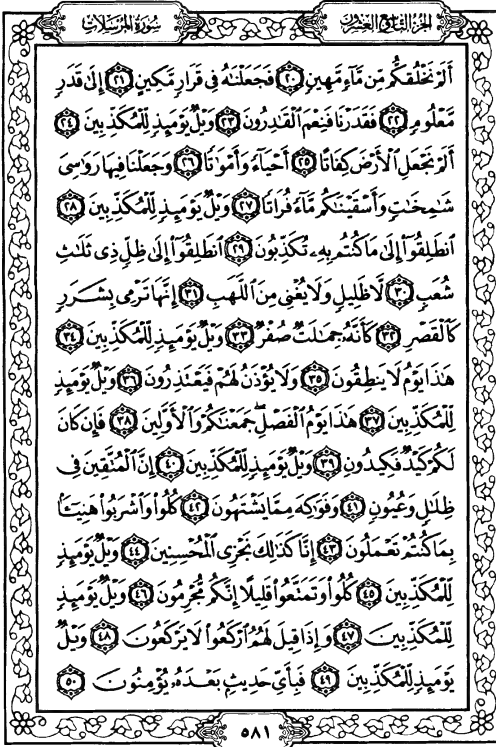 سورة المرسلات
الجزء التاسع والعشرون
أَلَمْ نَخْلُقكُّم مِّن مَّآءٍ مَّهِينٍ ٢٠ فَجَعَلْنَٰهُ فِى قَرَارٍ مَّكِينٍ ٢١ إِلَىٰ قَدَرٍ
مَّعْلُومٍ ٢٢ فَقَدَرْنَا فَنِعْمَ ٱلْقَٰدِرُونَ ٢٣ وَيْلٌ يَوْمَئِذٍ لِّلْمُكَذِّبِينَ ٢٤
أَلَمْ نَجْعَلِ ٱلْأَرْضَ كِفَاتًا ٢٥ أَحْيَآءً وَأَمْوَٰتًا ٢٦ وَجَعَلْنَا فِيهَا رَوَٰسِىَ
شَٰمِخَٰتٍ وَأَسْقَيْنَٰكُم مَّآءً فُرَاتًا ٢٧ وَيْلٌ يَوْمَئِذٍ لِّلْمُكَذِّبِينَ ٢٨
ٱنطَلِقُوٓا۟ إِلَىٰ مَا كُنتُم بِهِۦ تُكَذِّبُونَ ٢٩ ٱنطَلِقُوٓا۟ إِلَىٰ ظِلٍّ ذِى ثَلَٰثِ
شُعَبٍ ٣٠ لَّا ظَلِيلٍ وَلَا يُغْنِى مِنَ ٱللَّهَبِ ٣١ إِنَّهَا تَرْمِى بِشَرَرٍ
كَٱلْقَصْرِ ٣٢ كَأَنَّهُۥ جِمَٰلَتٌ صُفْرٌ ٣٣ وَيْلٌ يَوْمَئِذٍ لِّلْمُكَذِّبِينَ ٣٤
هَٰذَا يَوْمُ لَا يَنطِقُونَ ٣٥ وَلَا يُؤْذَنُ لَهُمْ فَيَعْتَذِرُونَ ٣٦ وَيْلٌ يَوْمَئِذٍ
لِّلْمُكَذِّبِينَ ٣٧ هَٰذَا يَوْمُ ٱلْفَصْلِ ۖ جَمَعْنَٰكُمْ وَٱلْأَوَّلِينَ ٣٨ فَإِن كَانَ
لَكُمْ كَيْدٌ فَكِيدُونِ ٣٩ وَيْلٌ يَوْمَئِذٍ لِّلْمُكَذِّبِينَ ٤٠ إِنَّ ٱلْمُتَّقِينَ فِى
ظِلَٰلٍ وَعُيُونٍ ٤١ وَفَوَٰكِهَ مِمَّا يَشْتَهُونَ ٤٢ كُلُوا۟ وَٱشْرَبُوا۟ هَنِيٓـًٔۢا
بِمَا كُنتُمْ تَعْمَلُونَ ٤٣ إِنَّا كَذَٰلِكَ نَجْزِى ٱلْمُحْسِنِينَ ٤٤ وَيْلٌ يَوْمَئِذٍ
لِّلْمُكَذِّبِينَ ٤٥ كُلُوا۟ وَتَمَتَّعُوا۟ قَلِيلًا إِنَّكُم مُّجْرِمُونَ ٤٦ وَيْلٌ يَوْمَئِذٍ
لِّلْمُكَذِّبِينَ ٤٧ وَإِذَا قِيلَ لَهُمُ ٱرْكَعُوا۟ لَا يَرْكَعُونَ ٤٨ وَيْلٌ
يَوْمَئِذٍ لِّلْمُكَذِّبِينَ ٤٩ فَبِأَىِّ حَدِيثٍۭ بَعْدَهُۥ يُؤْمِنُونَ ٥٠
٥٨١